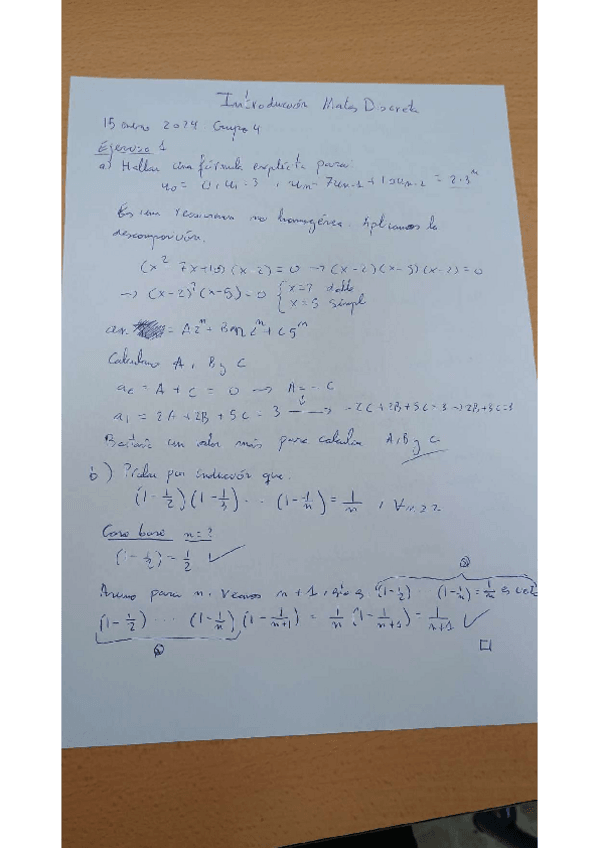 Introducción Mates Discreta
15 enero 2024 Grupo 4
Ejercicio 1
a) Hallar una fórmula explícita para:
u₀ = 0, u₁ = 3, uₙ - 7uₙ₋₁ + 10uₙ₋₂ = 2·3ⁿ
Es una recurrencia no homogénea. Aplicamos la
descomposición.
(x² 7x+10)(x-2)=0 → (x-2)(x-5)(x-2)=0
→ (x-2)²(x-5)=0 { x=2 doble
x=5 simple
aₙ = A2ⁿ + Bn2ⁿ + C5ⁿ
Calculamos A, B y C
a₀ = A + C = 0 → A = -C
a₁ = 2A + 2B + 5C = 3 → -2C+2B+5C=3 → 2B+3C=3
un valor más para calcular A, B y C
b) Probar por inducción que:
(1-1/2)(1-1/3)...(1-1/n) = 1/n, ∀n≥2
Caso base n=2
(1-1/2)=1/2 ✓
para n. veamos n+1, (1-1/2)...(1-1/n)=1/n es
(1-1/2)...(1-1/n)(1-1/(n+1)) = 1/n (1-1/(n+1)) = 1/(n+1) ✓
□